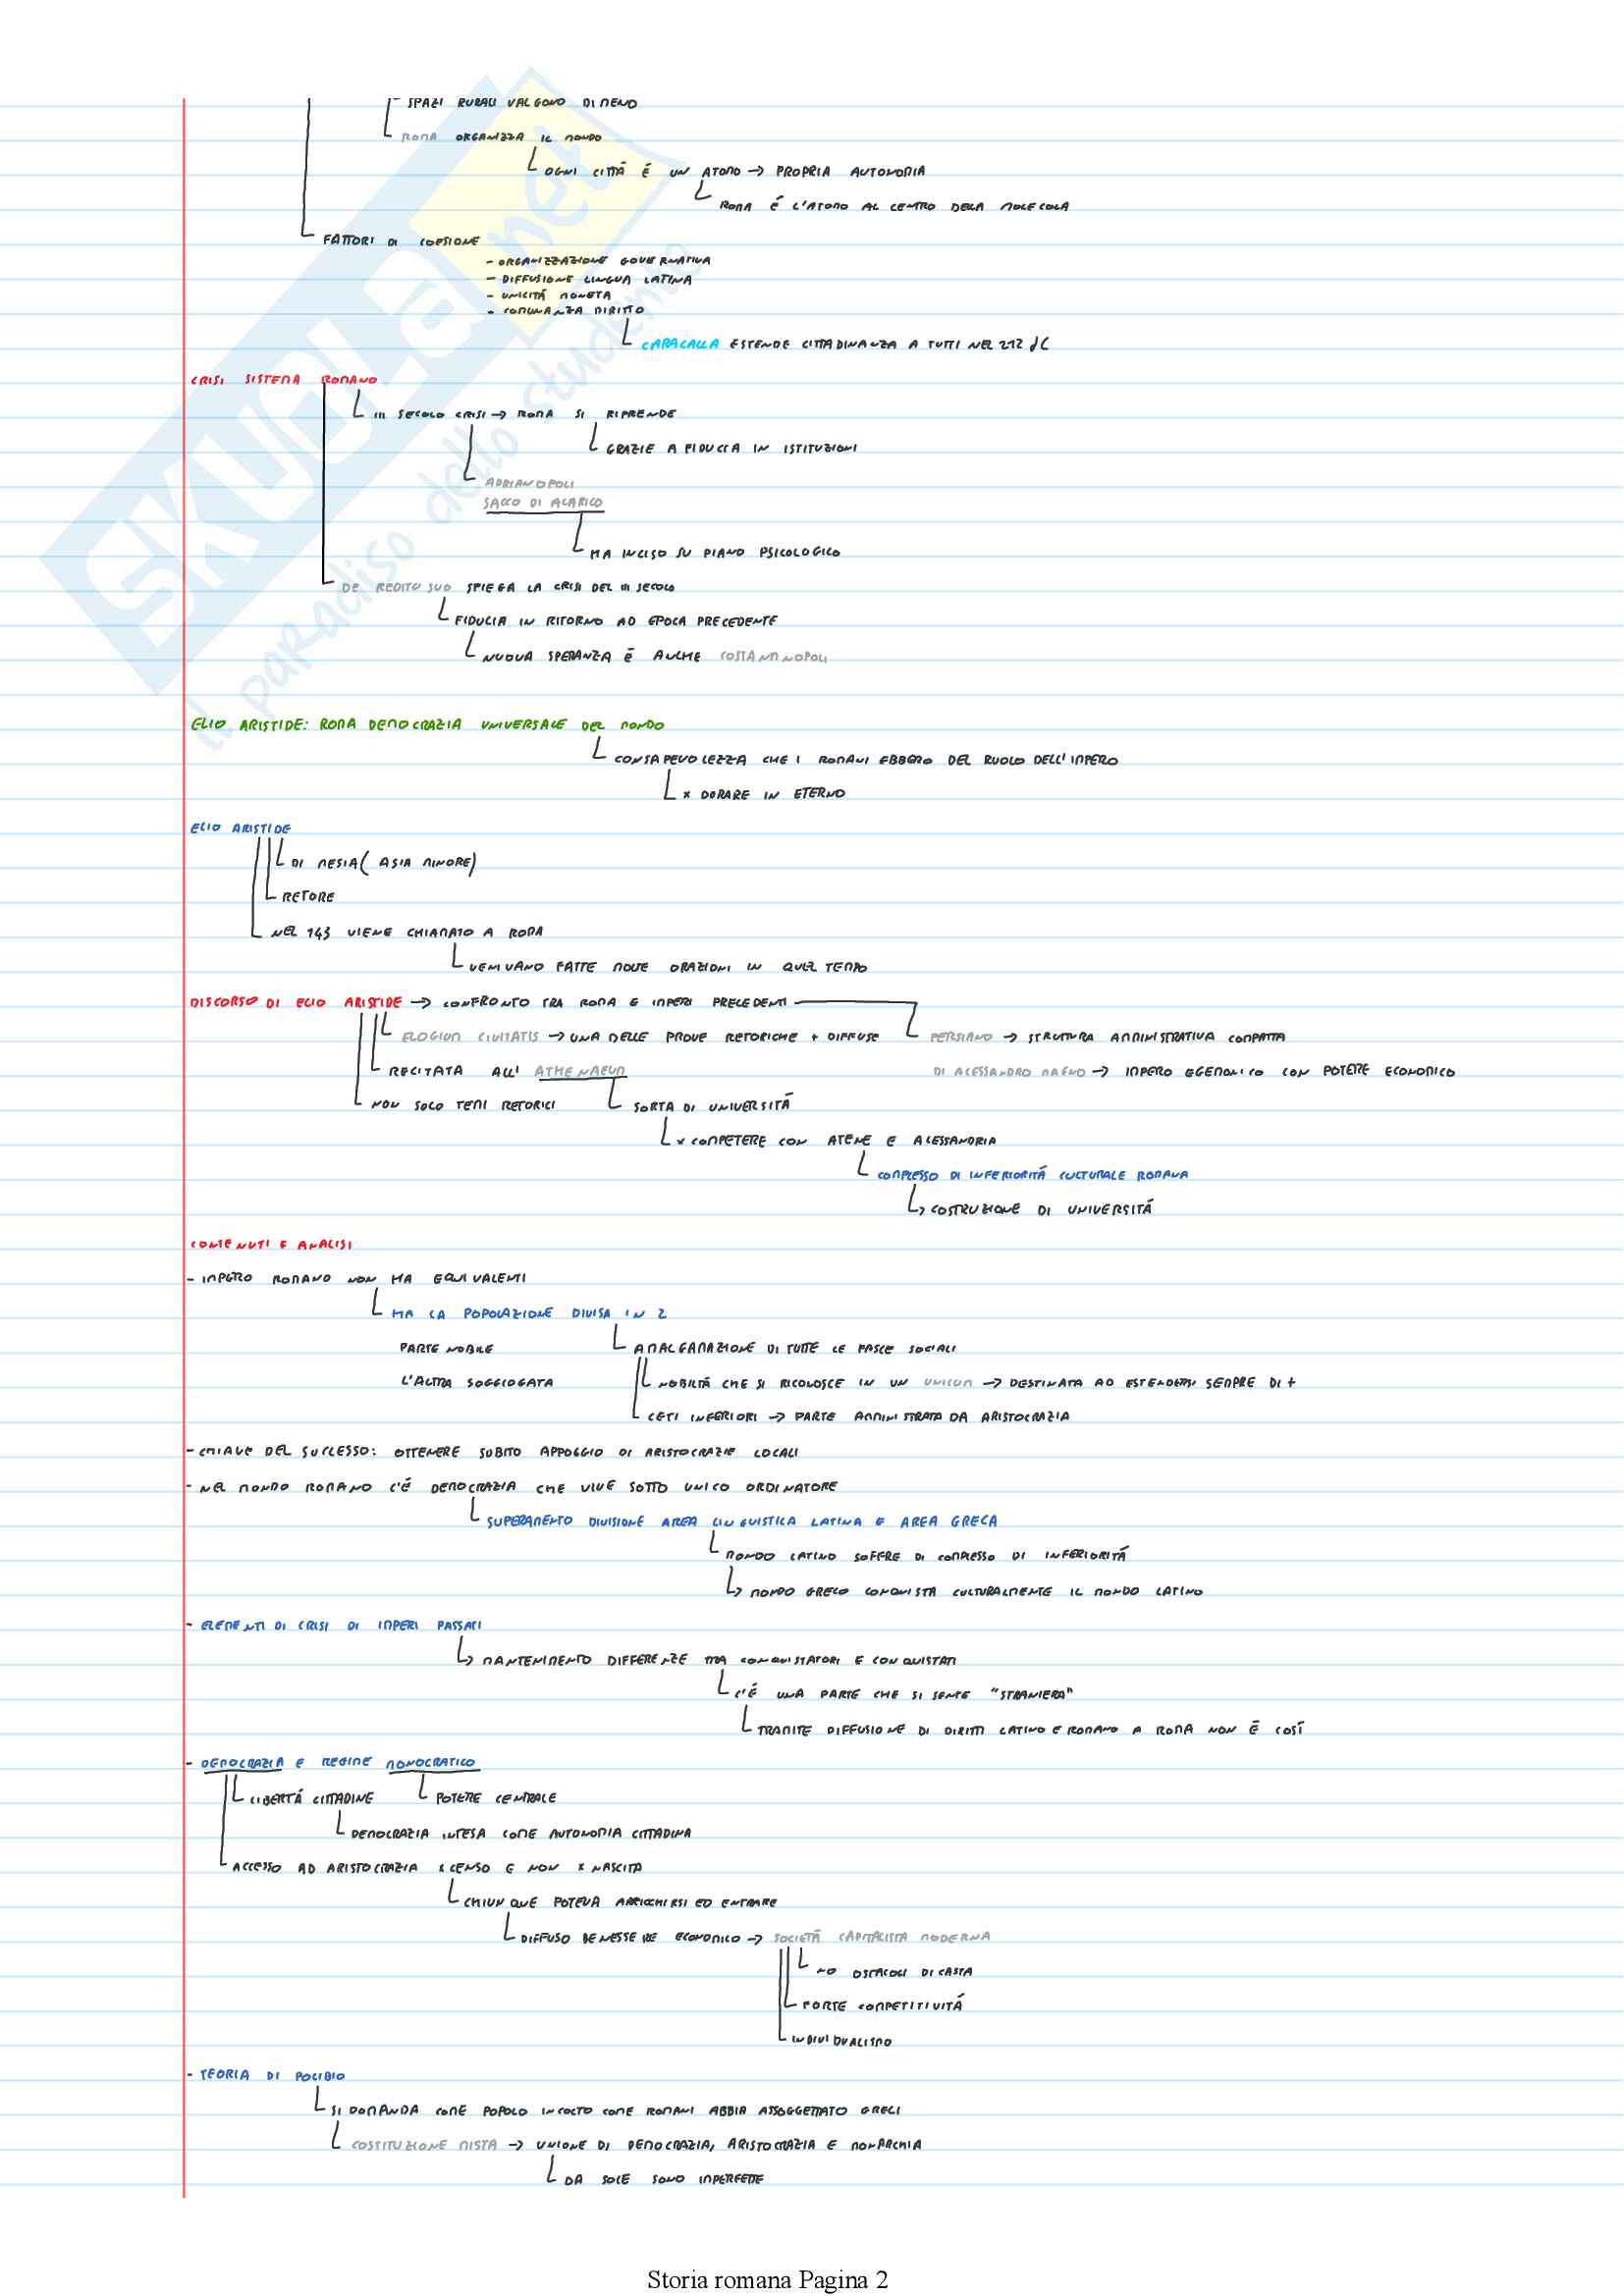 SPAZI RURALI VALGONO DI MENO
ROMA ORGANIZZA IL MONDO
OGNI CITTÁ É UN ATOMO → PROPRIA AUTONOMIA
ROMA É L'ATOMO AL CENTRO DELLA MOLECOLA
FATTORI DI COESIONE
- ORGANIZZAZIONE GOVERNATIVA
- DIFFUSIONE LINGUA LATINA
- UNICITÁ MONETA
- COMUNANZA DIRITTO
CARACALLA ESTENDE CITTADINANZA A TUTTI NEL 212 dC
CRISI SISTEMA ROMANO
III SECOLO CRISI → ROMA SI RIPRENDE
GRAZIE A FIDUCIA IN ISTITUZIONI
ADRIANOPOLI
SACCO DI ALARICO
HA INCISO SU PIANO PSICOLOGICO
DE REDITU SUO SPIEGA LA CRISI DEL III SECOLO
FIDUCIA IN RITORNO AD EPOCA PRECEDENTE
NUOVA SPERANZA É ANCHE COSTANTINOPOLI
ELIO ARISTIDE: ROMA DEMOCRAZIA UNIVERSALE DEL MONDO
CONSAPEVOLEZZA CHE I ROMANI EBBERO DEL RUOLO DELL'IMPERO
x DURARE IN ETERNO
ELIO ARISTIDE
DI MESIA (ASIA MINORE)
RETORE
NEL 143 VIENE CHIAMATO A ROMA
VENIVANO FATTE MOLTE ORAZIONI IN QUEL TEMPO
DISCORSO DI ELIO ARISTIDE → CONFRONTO TRA ROMA E IMPERI PRECEDENTI
ELOGIUM CIVITATIS → UNA DELLE PROVE RETORICHE + DIFFUSE PERSIANO → STRUTTURA AMMINISTRATIVA COMPATTA
RECITATA ALL' ATHENAEUM DI ALESSANDRO MAGNO → IMPERO EGEMONICO CON POTERE ECONOMICO
NON SOLO TEMI RETORICI SORTA DI UNIVERSITÁ
x COMPETERE CON ATENE E ALESSANDRIA
COMPLESSO DI INFERIORITÁ CULTURALE ROMANA
COSTRUZIONE DI UNIVERSITÁ
CONTENUTI E ANALISI
- IMPERO ROMANO NON HA EQUIVALENTI
HA LA POPOLAZIONE DIVISA IN 2
PARTE NOBILE AMALGAMAZIONE DI TUTTE LE FASCE SOCIALI
L'ALTRA SOGGIOGATA NOBILTÁ CHE SI RICONOSCE IN UN UNICUM → DESTINATA AD ESTENDERSI SEMPRE DI +
CETI INFERIORI → PARTE AMMINISTRATA DA ARISTOCRAZIA
- CHIAVE DEL SUCCESSO: OTTENERE SUBITO APPOGGIO DI ARISTOCRAZIE LOCALI
- NEL MONDO ROMANO C'É DEMOCRAZIA CHE VIVE SOTTO UNICO ORDINATORE
SUPERAMENTO DIVISIONE AREA LINGUISTICA LATINA E AREA GRECA
MONDO LATINO SOFFRE DI COMPLESSO DI INFERIORITÁ
MONDO GRECO CONQUISTA CULTURALMENTE IL MONDO LATINO
- ELEMENTI DI CRISI DI IMPERI PASSATI
MANTENIMENTO DIFFERENZE TRA CONQUISTATORI E CONQUISTATI
C'É UNA PARTE CHE SI SENTE "STRANIERA"
TRAMITE DIFFUSIONE DI DIRITTI LATINO E ROMANO A ROMA NON É COSÍ
- DEMOCRAZIA E REGIME MONOCRATICO
LIBERTÁ CITTADINE POTERE CENTRALE
DEMOCRAZIA INTESA COME AUTONOMIA CITTADINA
ACCESSO AD ARISTOCRAZIA x CENSO E NON x NASCITA
CHIUNQUE POTEVA ARRICCHIRSI ED ENTRARE
DIFFUSO BENESSERE ECONOMICO → SOCIETÁ CAPITALISTA MODERNA
NO OSTACOLI DI CASTA
FORTE COMPETITIVITÁ
INDIVIDUALISMO
- TEORIA DI POLIBIO
SI DOMANDA COME POPOLO INCOLTO COME ROMANI ABBIA ASSOGGETTATO GRECI
COSTITUZIONE MISTA → UNIONE DI DEMOCRAZIA, ARISTOCRAZIA E MONARCHIA
DA SOLE SONO IMPERFETTE
SKUOLA.net
il paradiso dello studente
Storia romana Pagina 2